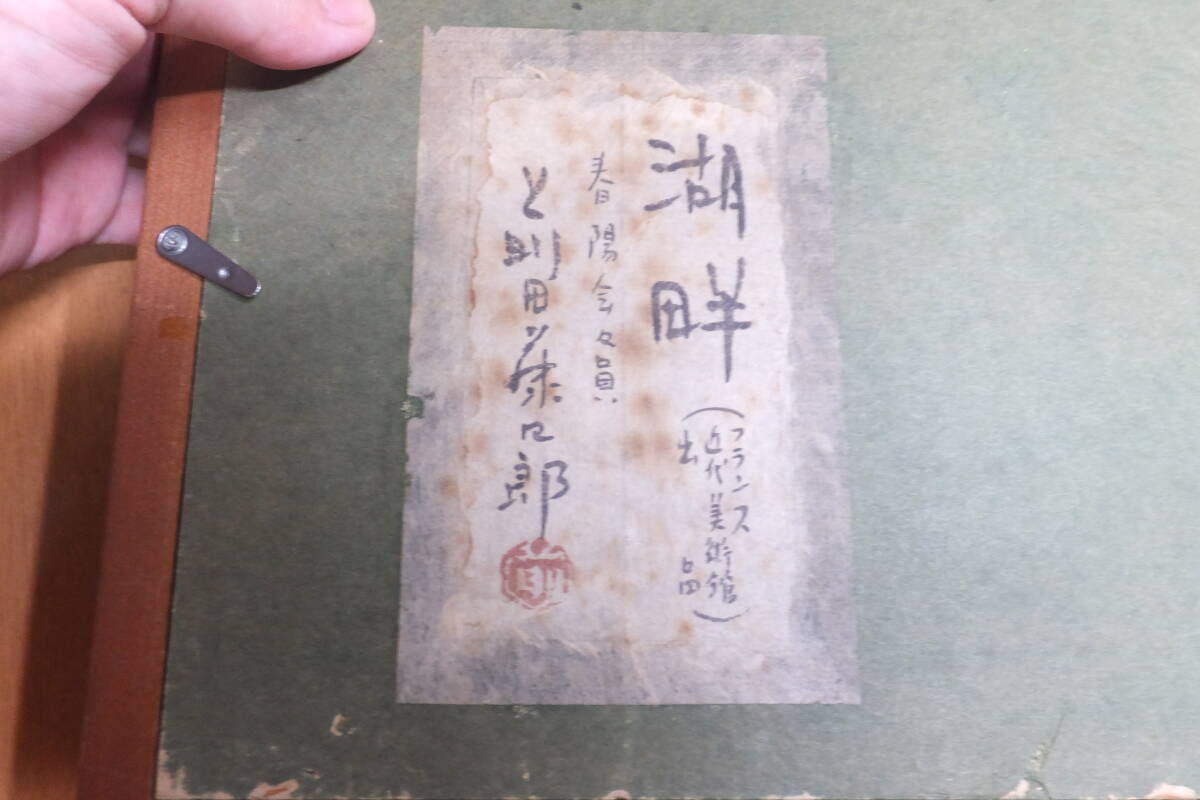 湖畔
(フランス
近代美術館
出品)
春陽会々員
前田藤四郎
前